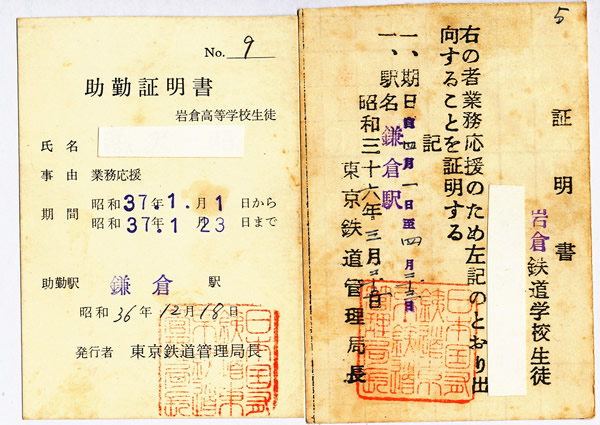 No. 9
助勤証明書
岩倉高等学校生徒
氏名
事由 業務応援
期間 昭和37年1.月1日から
昭和37年.1月23日まで
助勤駅 鎌倉 駅
昭和36年12月18日
発行者 東京鉄道管理局長
5
証明書
岩倉鉄道学校生徒
右の者業務応援のため左記のとおり出
向することを証明する
記
一、期日自四月一日至四月
一、駅名 鎌倉駅
昭和三十六年三月 日
東京鉄道管理局長